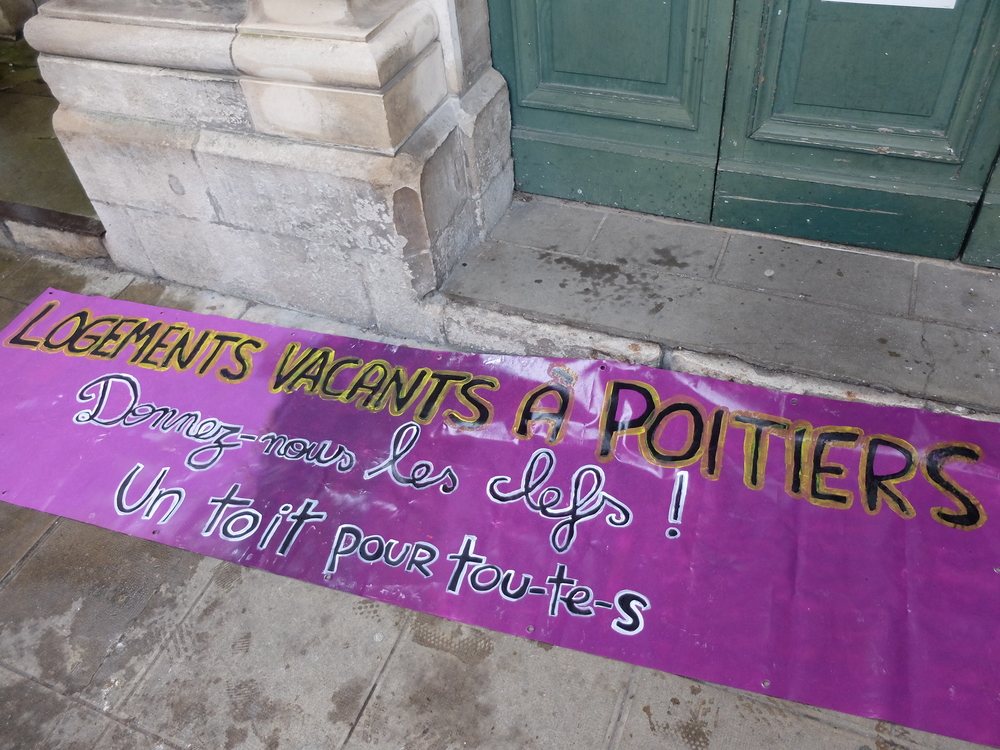 LOGEMENTS VACANTS À POITIERS
Donnez-nous les clefs !
Un toit pour tou-te-s